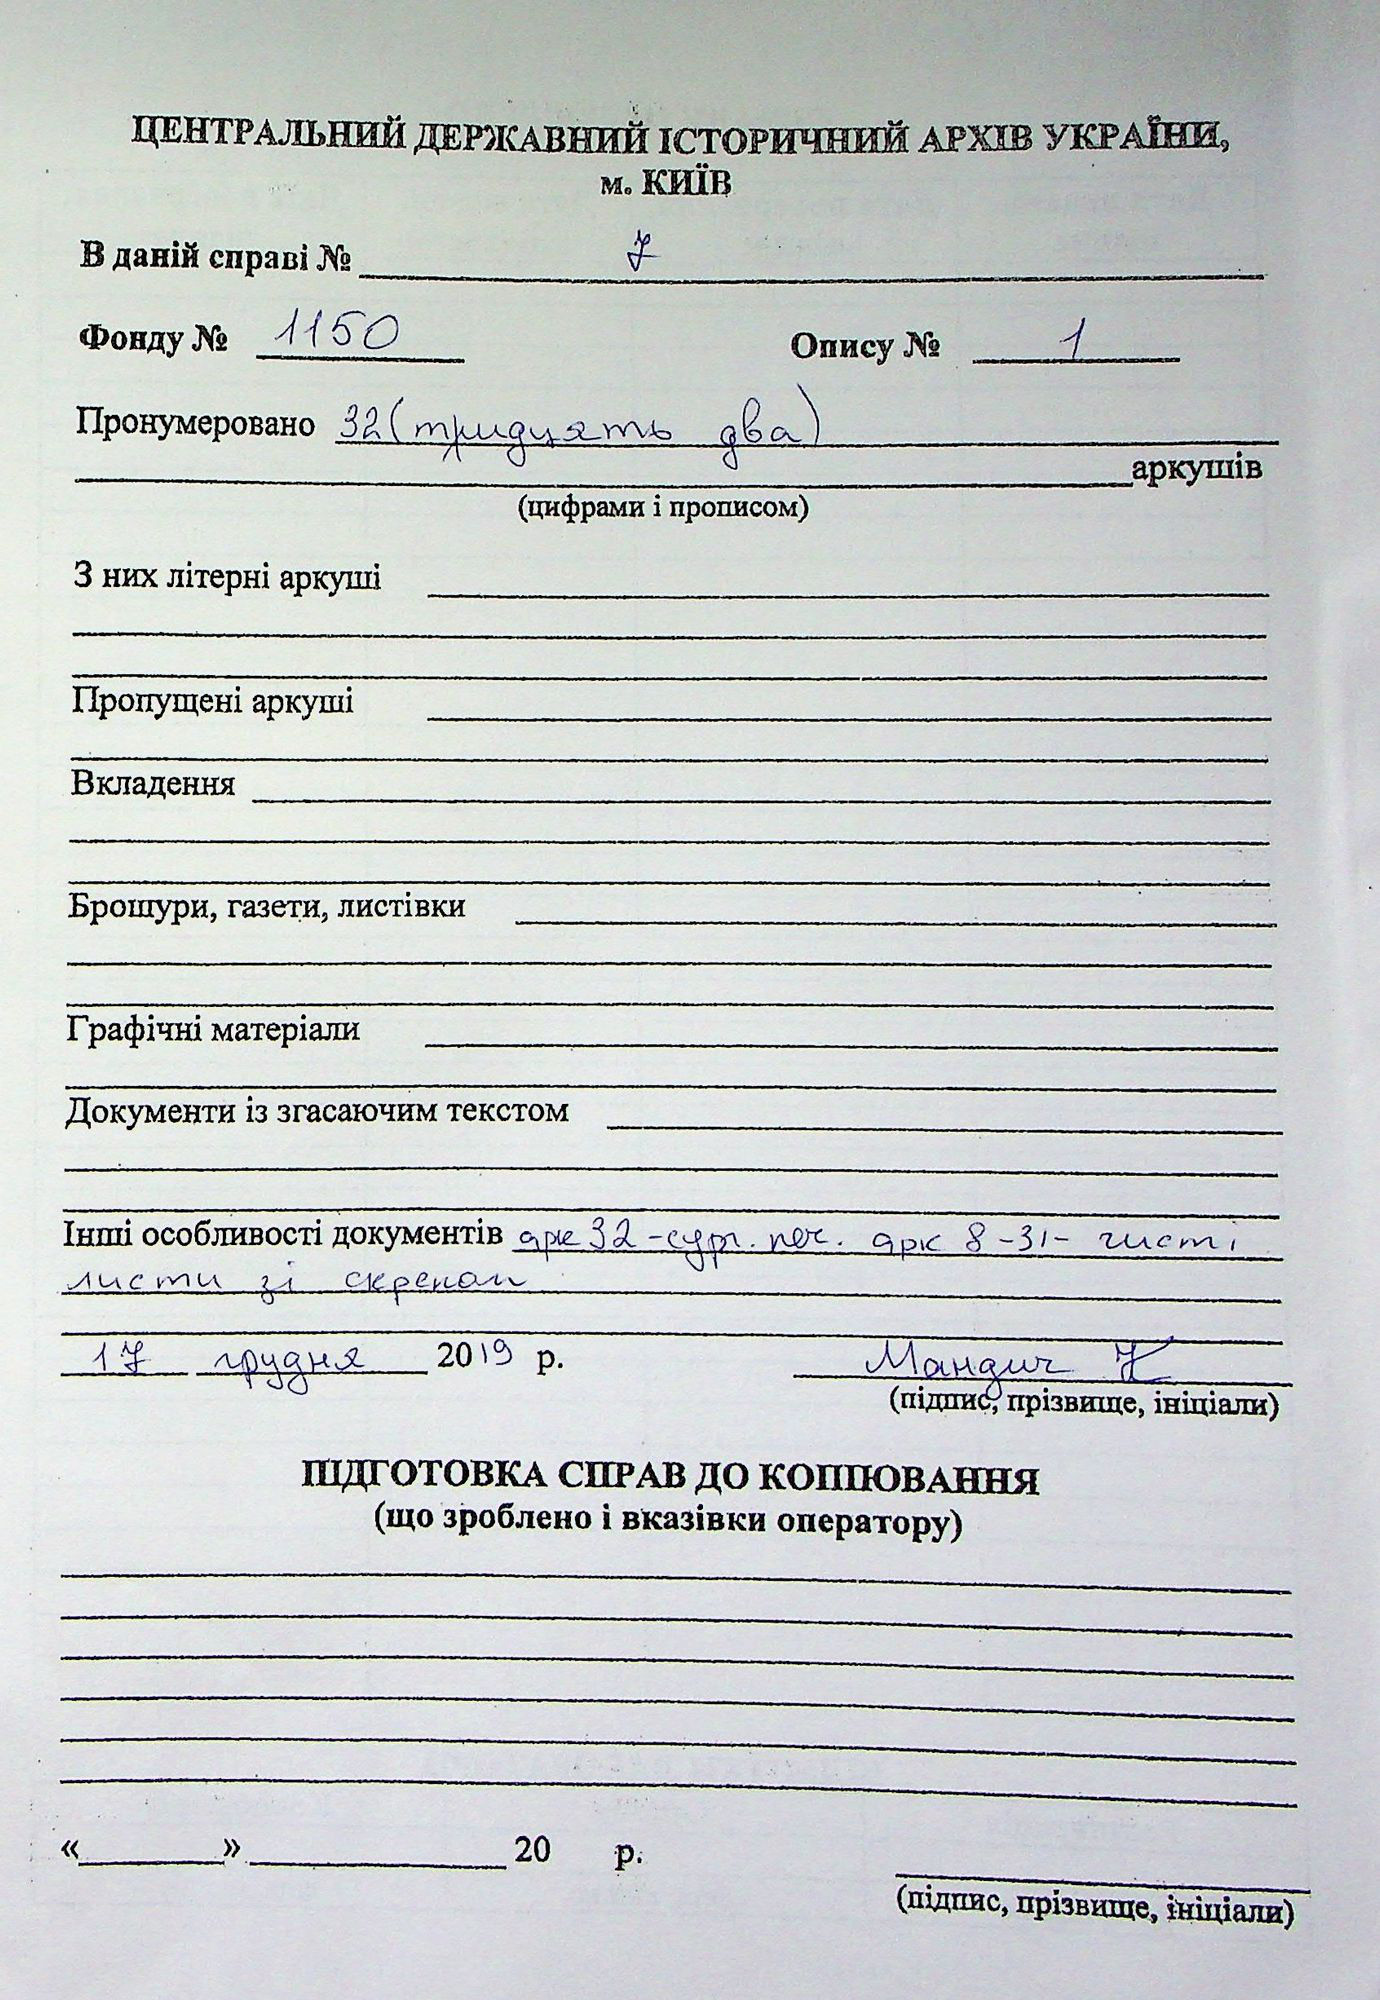 ЦЕНТРАЛЬНИЙ ДЕРЖАВНИЙ ІСТОРИЧНИЙ АРХІВ УКРАЇНИ,
м. КИЇВ
В даній справі № 7
Фонду № 1150 Опису № 1
Пронумеровано 32 (тридцять два)
аркушів
(цифрами і прописом)
З них літерні аркуші
Пропущені аркуші
Вкладення
Брошури, газети, листівки
Графічні матеріали
Документи із згасаючим текстом
Інші особливості документів арк 32 - сург. печ. арк 8-31- чисті
листи зі скрепами
17 грудня 2019 р. Мандич
(підпис, прізвище, ініціали)
ПІДГОТОВКА СПРАВ ДО КОПІЮВАННЯ
(що зроблено і вказівки оператору)
« » 20 р.
(підпис, прізвище, ініціали)